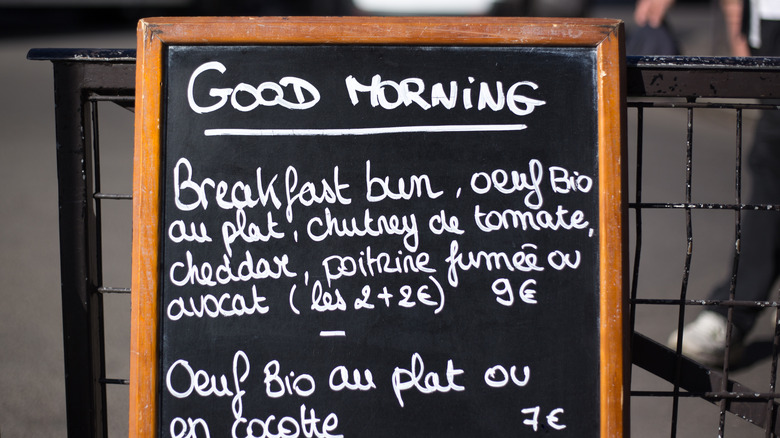 GOOD MORNING
Breakfast bun, oeuf Bio
au plat, chutney de tomate,
cheddar, poitrine fumée ou
avocat (les 2 + 2€) 9€
—
Oeuf Bio au plat ou
en cocotte 7€